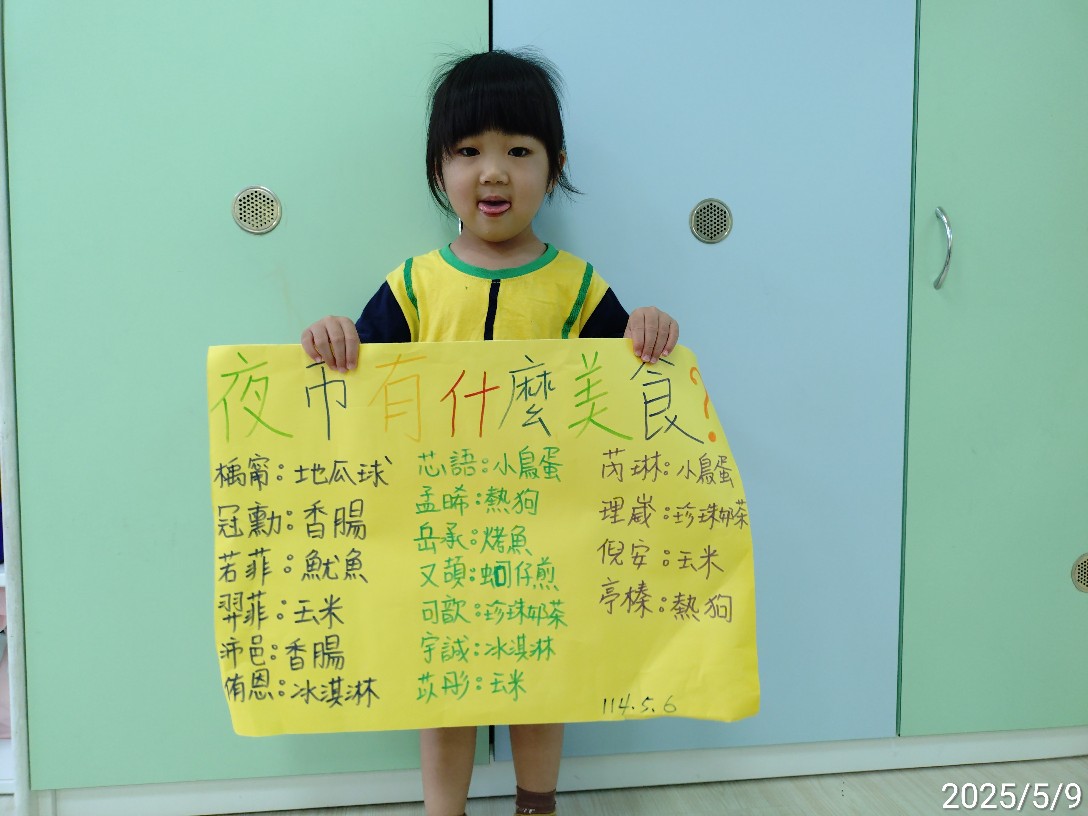 夜市有什麼美食?
楀甯:地瓜球
冠勳:香腸
若菲:魷魚
羿菲:玉米
沛邑:香腸
侑恩:冰淇淋
芯語:小鳥蛋
孟晞:熱狗
岳承:烤魚
又頡:蚵仔煎
可歆:珍珠奶茶
宇誠:冰淇淋
苡彤:玉米
芮琳:小鳥蛋
理崴:珍珠奶茶
倪安:玉米
亭榛:熱狗
114.5.6
2025/5/9